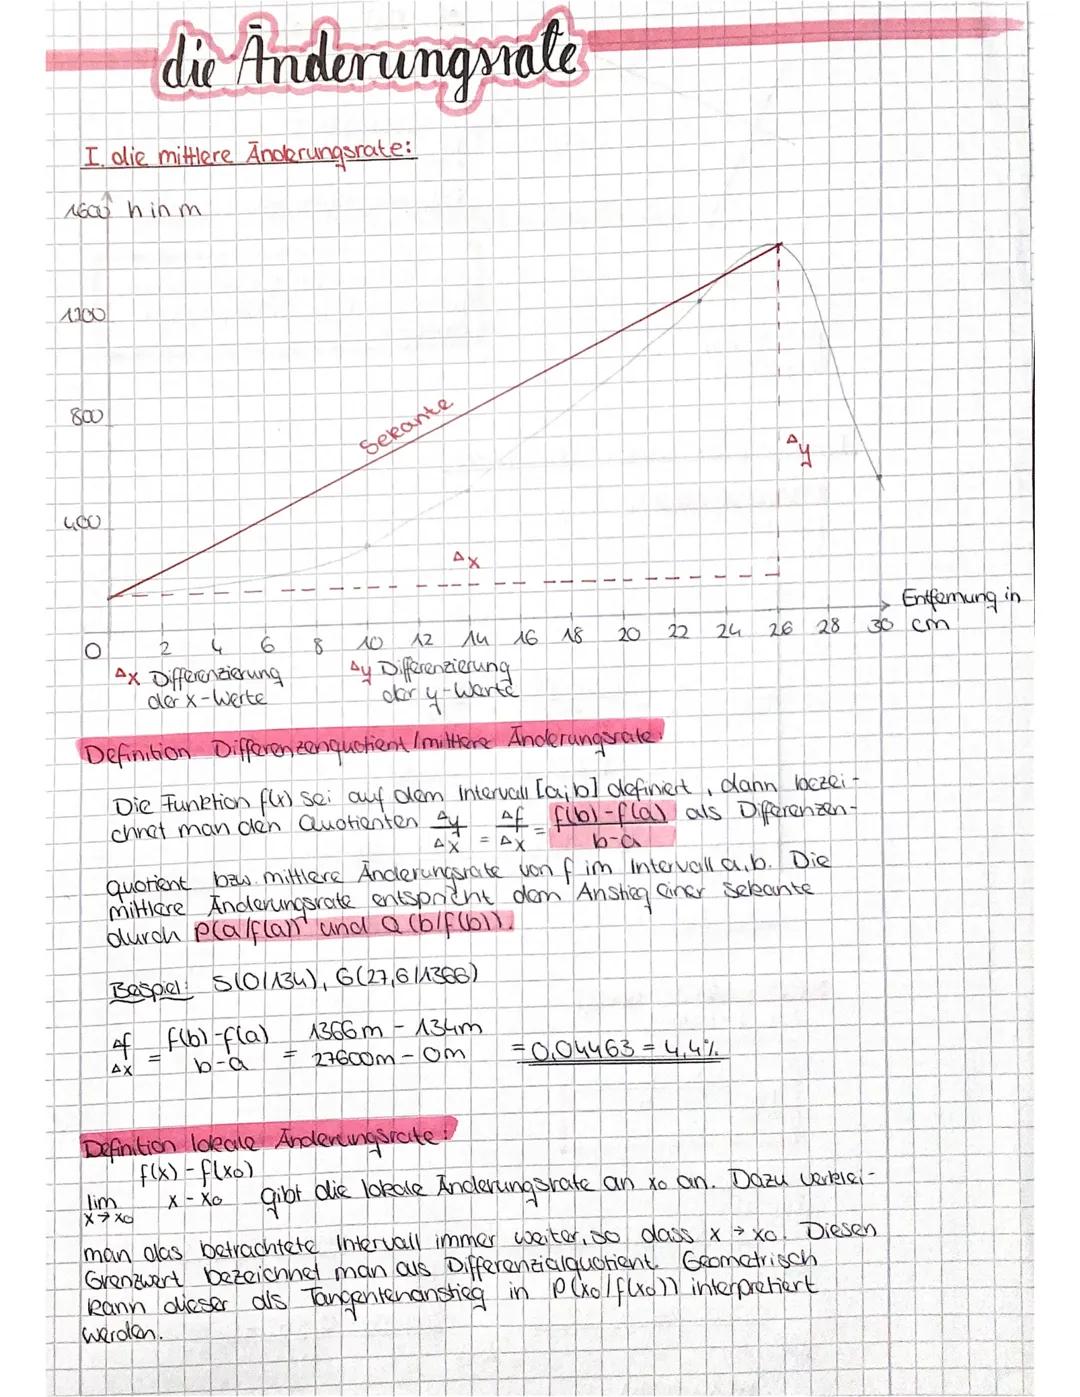 die Änderungsrate
I. die mittlere Änderungsrate:
1600 h in m
1200
800
400
Sekante
Δy
Δx
Entfernung in
cm
0 2 4 6 8 10 12 14 16 18 20 22 24 26 28 30
Δx Differenzierung
der x-Werte
Δy Differenzierung
der y-Werte
Definition Differenzenquotient/mittlere Änderungsrate:
Die Funktion f(x) sei auf dem Intervall [a;b] definiert, dann bezei-
chnet man den Quotienten Δy/Δx = Δf/Δx = f(b)-f(a)/b-a als Differenzen-
quotient bzw. mittlere Änderungsrate von f im Intervall a,b. Die
mittlere Änderungsrate entspricht dem Anstieg einer Sekante
durch P(a/f(a)) und Q(b/f(b)).
Beispiel: S(0/134), G(27,6/1366)
Δf/Δx = f(b)-f(a)/b-a = 1366m - 134m/27600m - 0m = 0,04463 = 4,4%
Definition lokale Änderungsrate:
lim x→x0 f(x)-f(x0)/x-x0 gibt die lokale Änderungsrate an x0 an. Dazu verklei-
man das betrachtete Intervall immer weiter, so dass x → x0. Diesen
Grenzwert bezeichnet man als Differenzialquotient. Geometrisch
kann dieser als Tangentenanstieg in P(x0/f(x0)) interpretiert
werden.